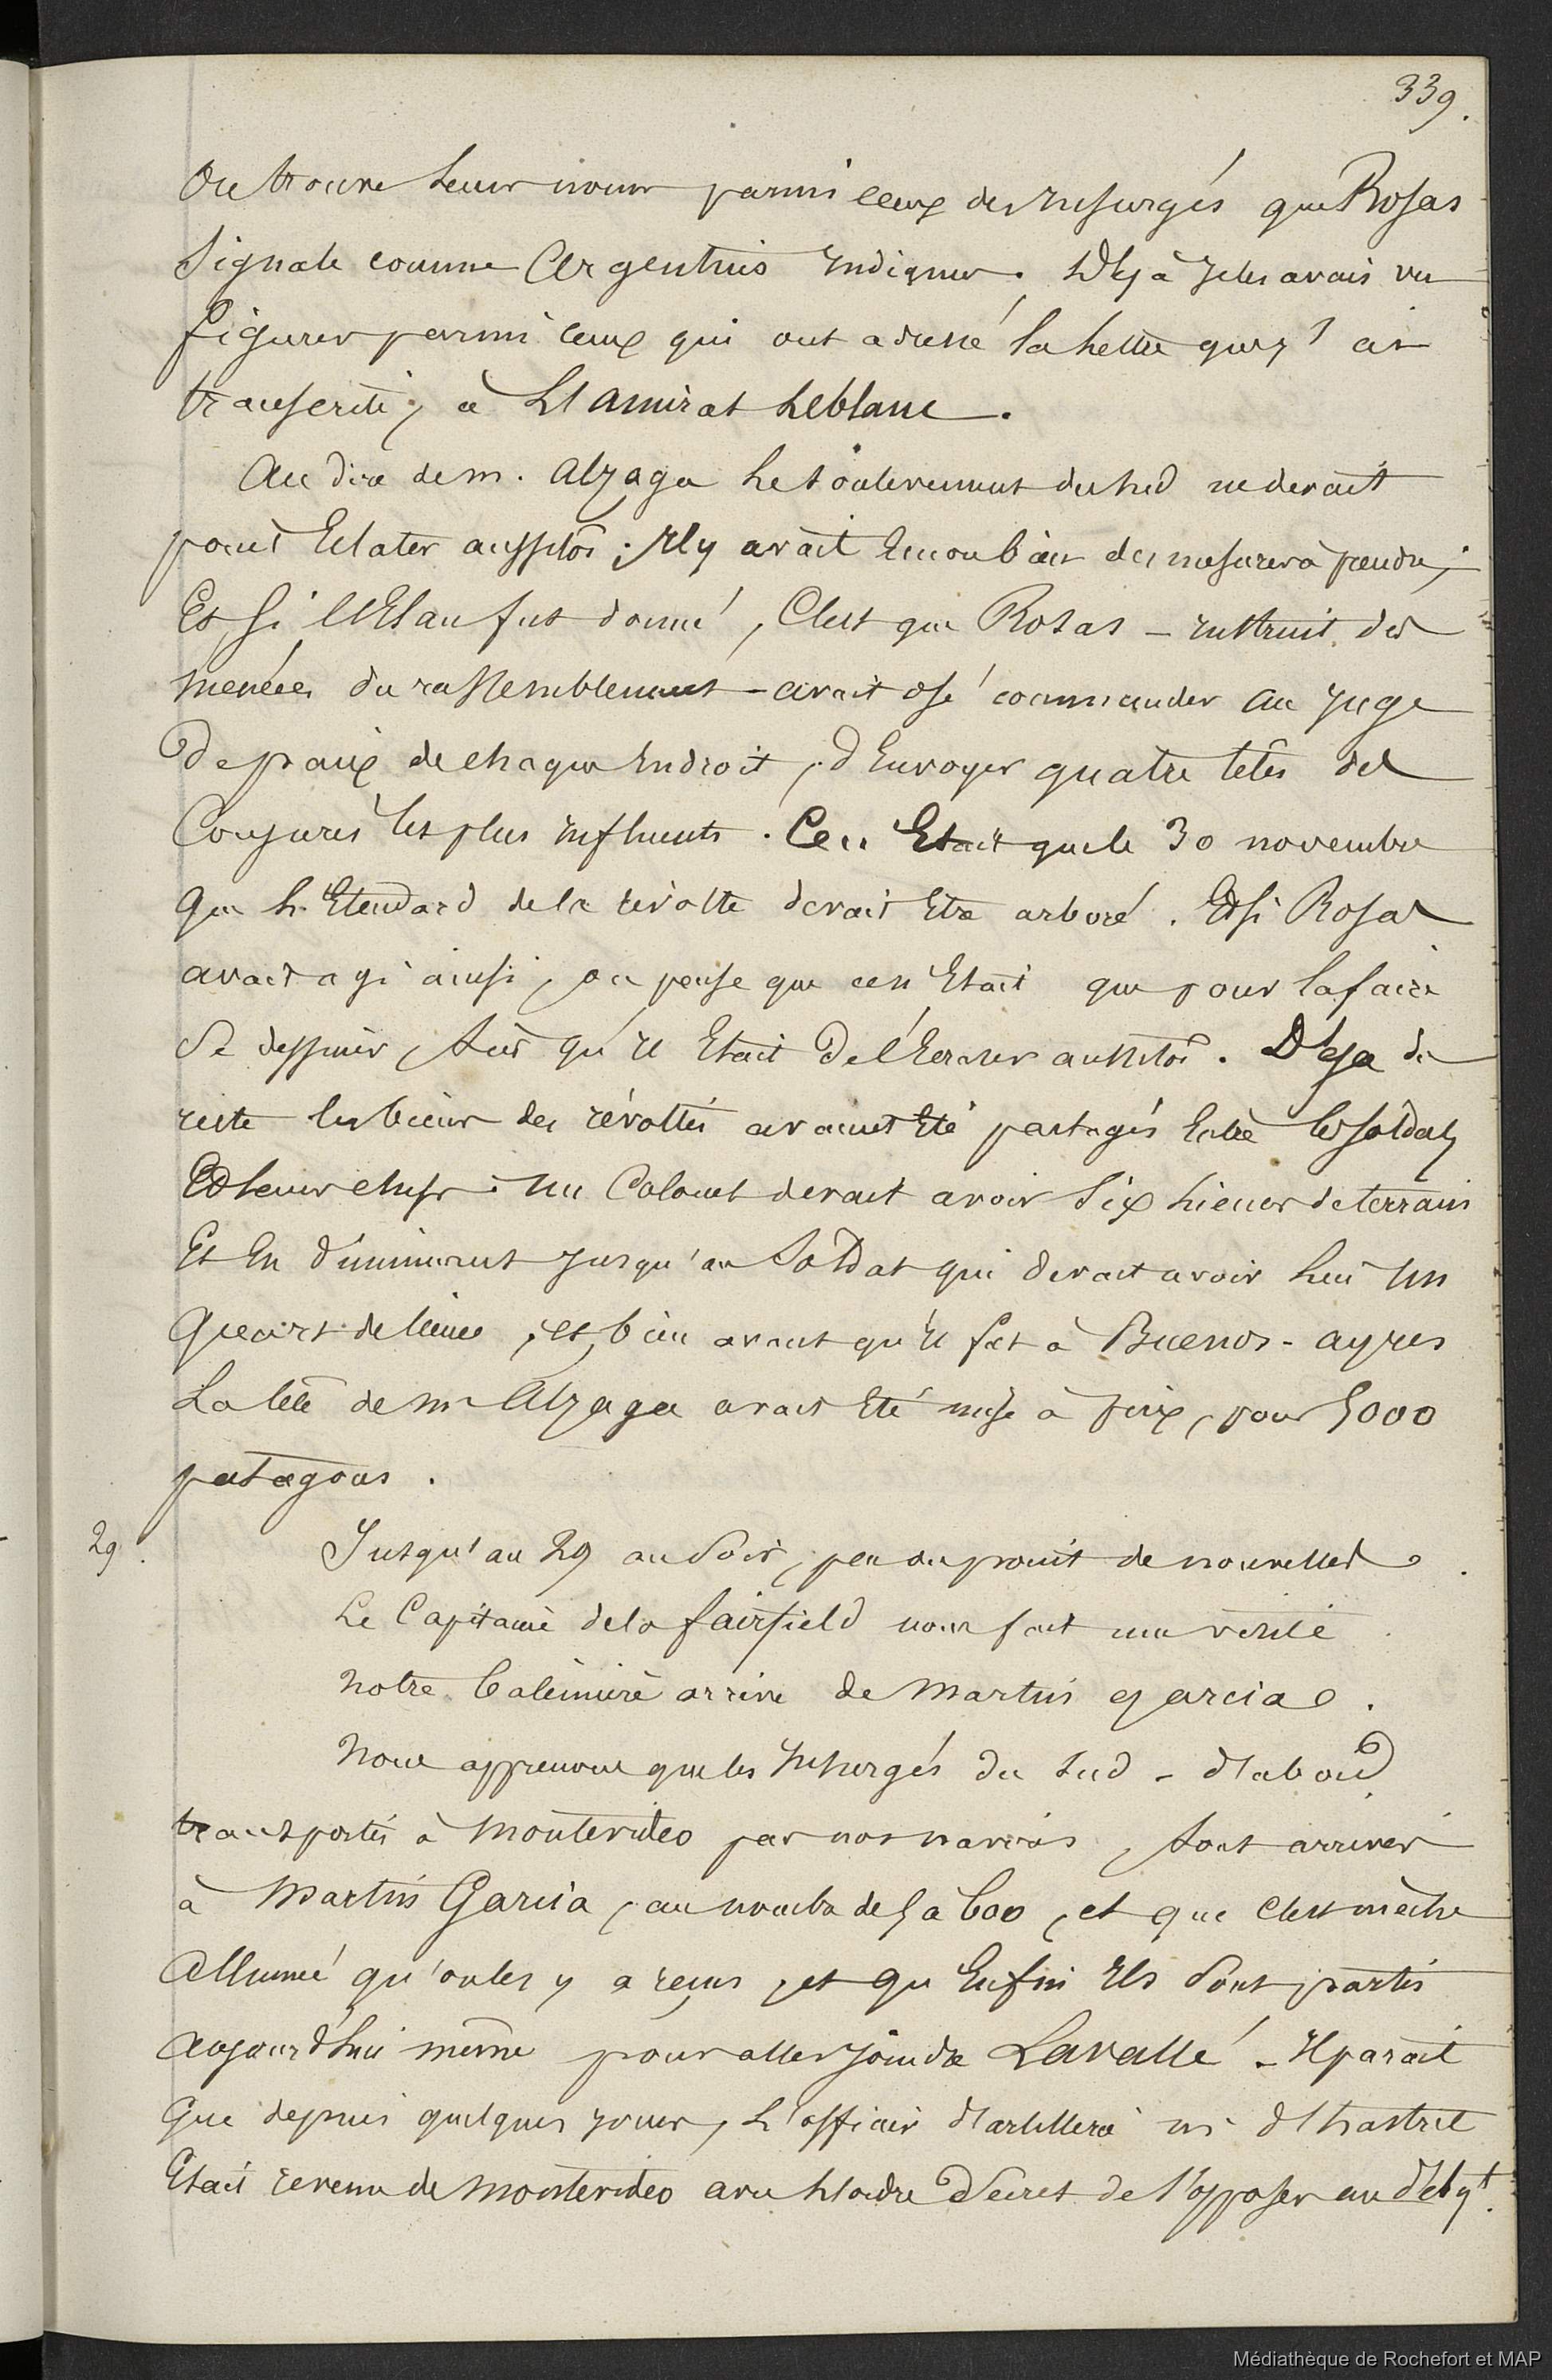 339.
On trouve leurs noms parmi ceux des insurgés que Rosas
signale comme Argentins indignes. Déjà je les avais vu
figurer parmi ceux qui ont adressé la lettre que j'ai
transcrite, à l'amiral Leblanc.
Au dire de m. Alzaga le soulèvement du sud ne devait
point Eclater aussitôt ; Il y avait Encore bien des mesures à prendre ;
Et si l'Elan fut donné, C'est que Rosas - instruit des
menées du rassemblement - avait osé commander au juge
de paix de chaque Endroit, d'Envoyer quatre têtes des
Conjurés les plus influents. Ce n'Etait que le 30 novembre
que l'Etendard de la révolte devait Etre arboré. Et si Rosas
avait agi ainsi, on pense que ce n'Etait que pour la faire
se dessiner, sûr qu'il Etait de l'Ecraser aussitôt. Déja du
reste les biens des révoltés avaient Eté partagés Entre les soldats
Et leurs chefs. Un Colonel devait avoir six lieues de terrain
Et En diminuant jusqu'au soldat qui devait avoir lui un
quart de lieue ; et bien avant qu'il fut à Buenos-ayres
La tête de mr Alzaga avait Eté mise à prix, pour 5000
patagons.
29.
Jusqu'au 29 au soir, peu ou point de nouvelles.
Le Capitaine de la fairfield nous fait une visite
notre baleinière arrive de martin garcia.
nous apprenons que les Insurgés du sud - d'abord
transportés à montevideo par nos navires, sont arrivés
à martin Garcia, au nombre de 5 à 600, et que c'est mèche
allumée qu'on les y a reçus, et qu'Enfin Ils sont partis
aujourd'hui même pour aller joindre Lavallé - Il parait
que depuis quelques jours, l'officier d'artillerie mr d'hastrel
Etait revenu de montevideo avec l'ordre secret de s'opposer au débqt.
Médiathèque de Rochefort et MAP